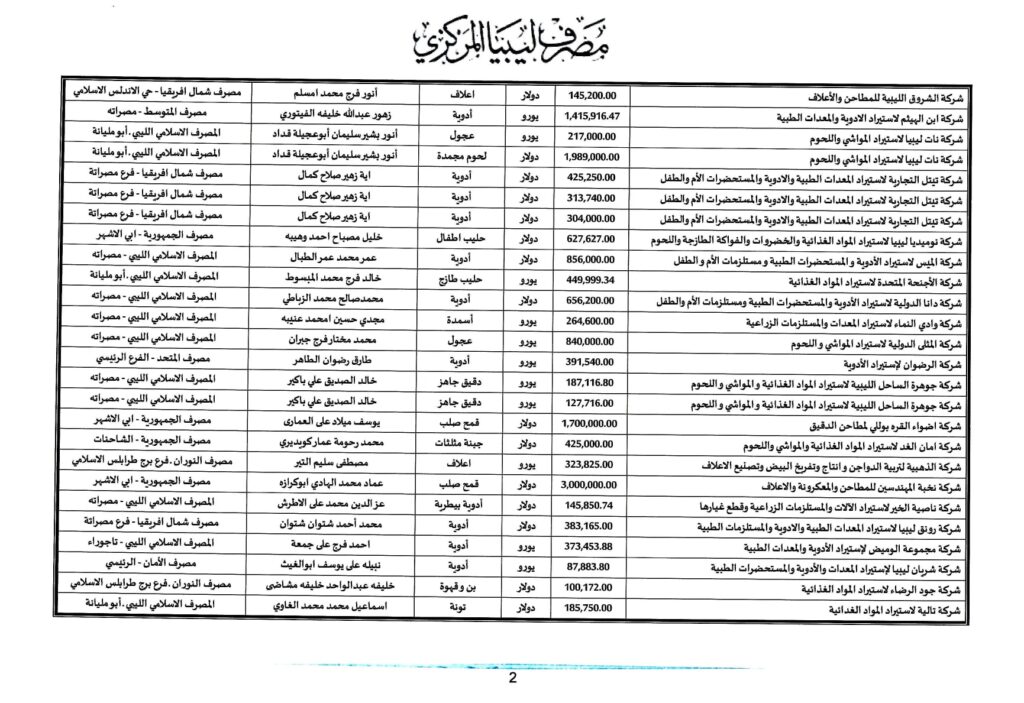 مصرف ليبيا المركزي
شركة الشروق الليبية للمطاحن والأعلاف 145,200.00 دولار اعلاف أنور فرج محمد امسلم مصرف شمال افريقيا - حي الاندلس الاسلامي
شركة ابن الهيثم لاستيراد الادوية والمعدات الطبية 1,415,916.47 يورو أدوية زهور عبدالله خليفه الفيتوري مصرف المتوسط - مصراته
شركة نات ليبيا لاستيراد المواشي واللحوم 217,000.00 يورو عجول أنور بشير سليمان أبوعجيلة قداد المصرف الاسلامي الليبي. أبو مليانة
شركة نات ليبيا لاستيراد المواشي واللحوم 1,989,000.00 دولار لحوم مجمدة أنور بشير سليمان أبوعجيلة قداد المصرف الاسلامي الليبي. أبو مليانة
شركة تيتل التجارية لاستيراد المعدات الطبية والادوية والمستحضرات الأم والطفل 425,250.00 دولار أدوية اية زهير صلاح كمال مصرف شمال افريقيا - فرع مصراتة
شركة تيتل التجارية لاستيراد المعدات الطبية والادوية والمستحضرات الأم والطفل 313,740.00 دولار أدوية اية زهير صلاح كمال مصرف شمال افريقيا - فرع مصراتة
شركة تيتل التجارية لاستيراد المعدات الطبية والادوية والمستحضرات الأم والطفل 304,000.00 دولار أدوية اية زهير صلاح كمال مصرف شمال افريقيا - فرع مصراتة
شركة نوميديا ليبيا لاستيراد المواد الغذائية والخضروات والفواكة الطازجة واللحوم 627,627.00 دولار حليب اطفال خليل مصباح احمد وهيبه مصرف الجمهورية - ابي الاشهر
شركة الميس لاستيراد الأدوية و المستحضرات الطبية و مستلزمات الأم و الطفل 856,000.00 دولار أدوية عمر محمد عمر الطبال المصرف الاسلامي الليبي - مصراته
شركة الأجنحة المتحدة لاستيراد المواد الغذائية 449,999.34 يورو حليب طازج خالد فرج محمد المبسوط المصرف الاسلامي الليبي. أبو مليانة
شركة دانا الدولية لاستيراد الأدوية والمستحضرات الطبية ومستلزمات الأم والطفل 656,200.00 دولار أدوية محمدصالح محمد الزباطي المصرف الاسلامي الليبي - مصراته
شركة وادي النماء لاستيراد المعدات والمستلزمات الزراعية 264,600.00 يورو أسمدة مجدي حسين امحمد عنيبه المصرف الاسلامي الليبي - مصراته
شركة المثلى الدولية لاستيراد المواشي و اللحوم 840,000.00 يورو عجول محمد مختار فرج جبران المصرف الاسلامي الليبي - مصراته
شركة الرضوان لإستيراد الأدوية 391,540.00 يورو أدوية طارق رضوان الطاهر مصرف المتحد - الفرع الرئيسي
شركة جوهرة الساحل الليبية لاستيراد المواد الغذائية و المواشي و اللحوم 187,116.80 يورو دقيق جاهز خالد الصديق علي باكير المصرف الاسلامي الليبي - مصراته
شركة جوهرة الساحل الليبية لاستيراد المواد الغذائية و المواشي و اللحوم 127,716.00 يورو دقيق جاهز خالد الصديق علي باكير المصرف الاسلامي الليبي - مصراته
شركة اضواء القره بوللي لمطاحن الدقيق 1,700,000.00 دولار قمح صلب يوسف ميلاد على العمارى مصرف الجمهورية - ابي الاشهر
شركة امان الغد لاستيراد المواد الغذائية والمواشي واللحوم 425,000.00 دولار جبنة مثلثات محمد رحومة عمار كوبديري مصرف الجمهورية - الشاحنات
شركة الذهبية لتربية الدواجن و انتاج وتفريخ البيض وتصنيع الاعلاف 323,825.00 يورو اعلاف مصطفى سليم التير مصرف النوران. فرع برج طرابلس الاسلامي
شركة نخبة المهندسين للمطاحن والمعكرونة والاعلاف 3,000,000.00 دولار قمح صلب عماد محمد الهادي ابوكرازه مصرف الجمهورية - ابي الاشهر
شركة ناصية الخير لاستيراد الآلات والمستلزمات الزراعية وقطع غيارها 145,850.74 دولار أدوية بيطرية عز الدين محمد على الاطرش المصرف الاسلامي الليبي - مصراته
شركة رونق ليبيا لاستيراد المعدات الطبية والادوية والمستلزمات الطبية 383,165.00 دولار أدوية محمد أحمد شتوان شتوان مصرف شمال افريقيا - فرع مصراتة
شركة مجموعة الوميض لإستيراد الأدوية والمعدات الطبية 373,453.88 يورو أدوية احمد فرج على جمعة المصرف الاسلامي الليبي - تاجوراء
شركة شريان ليبيا لإستيراد المعدات والأدوية والمستحضرات الطبية 87,883.80 يورو أدوية نبيله على يوسف ابوالغيث مصرف الأمان - الرئيسي
شركة جود الرضاء لاستيراد المواد الغذائية 100,172.00 دولار بن و قهوة خليفه عبدالواحد خليفه مشاضى مصرف النوران. فرع برج طرابلس الاسلامي
شركة تالية لاستيراد المواد الغدائية 185,750.00 دولار تونة اسماعيل محمد محمد الغاوي المصرف الاسلامي الليبي. أبو مليانة
2